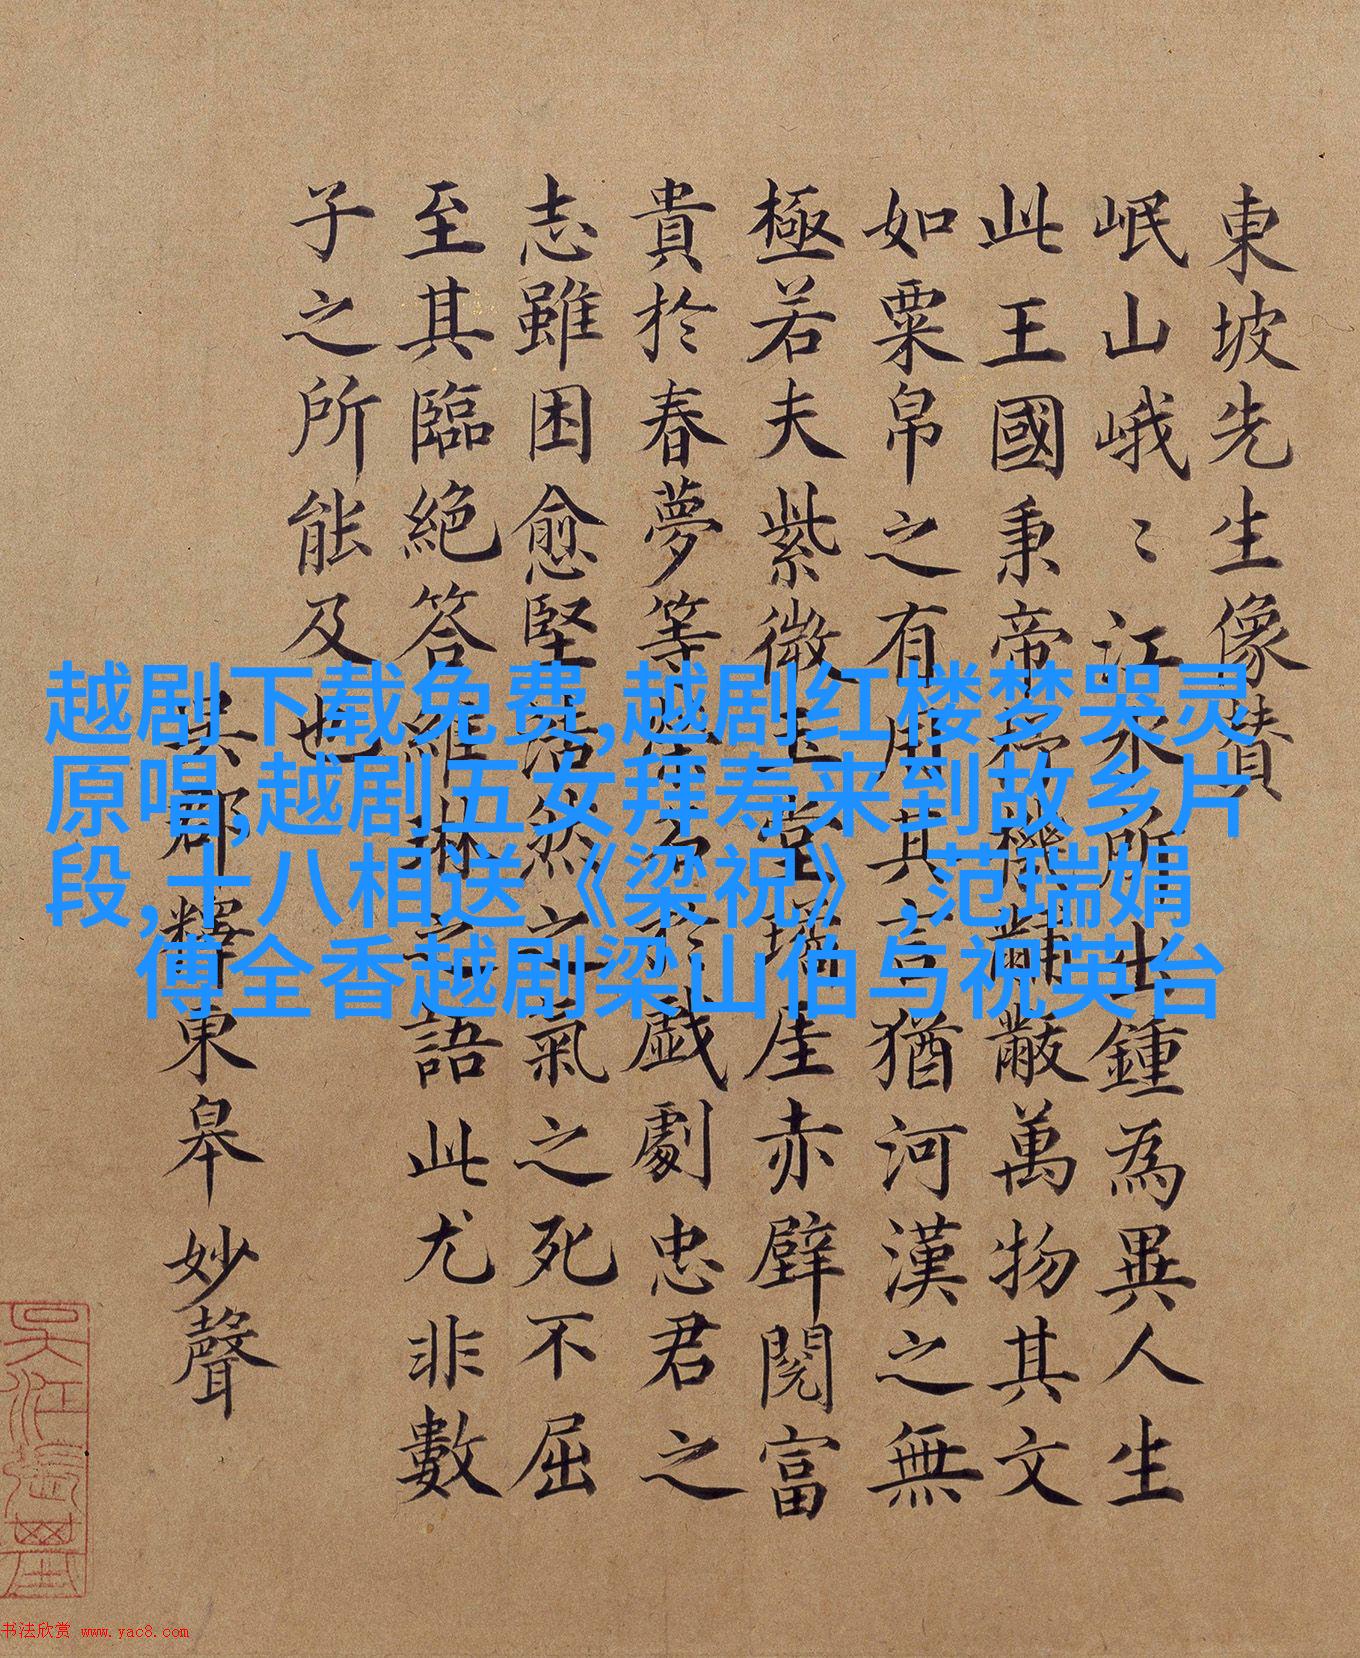 東坡先生像贊
岷山峨〻江水所出鍾為異人生
此王國秉帝機黼黻萬物其文
如粟帛之有用其言猶河漢之無
極若夫紫微玉堂瓊厓赤壁閱富
貴於春夢等於戲劇忠君之
志雖困愈堅浩然之氣之死不屈
至其臨絕答維琳之語此尤非數
子之所能及也
吳郡釋東皋妙聲
越剧下载免费,越剧红楼梦哭灵
原唱,越剧五女拜寿来到故乡片
段,十八相送《梁祝》,范瑞娟
傅全香越剧梁山伯与祝英台
书法欣赏 www.yac8.com